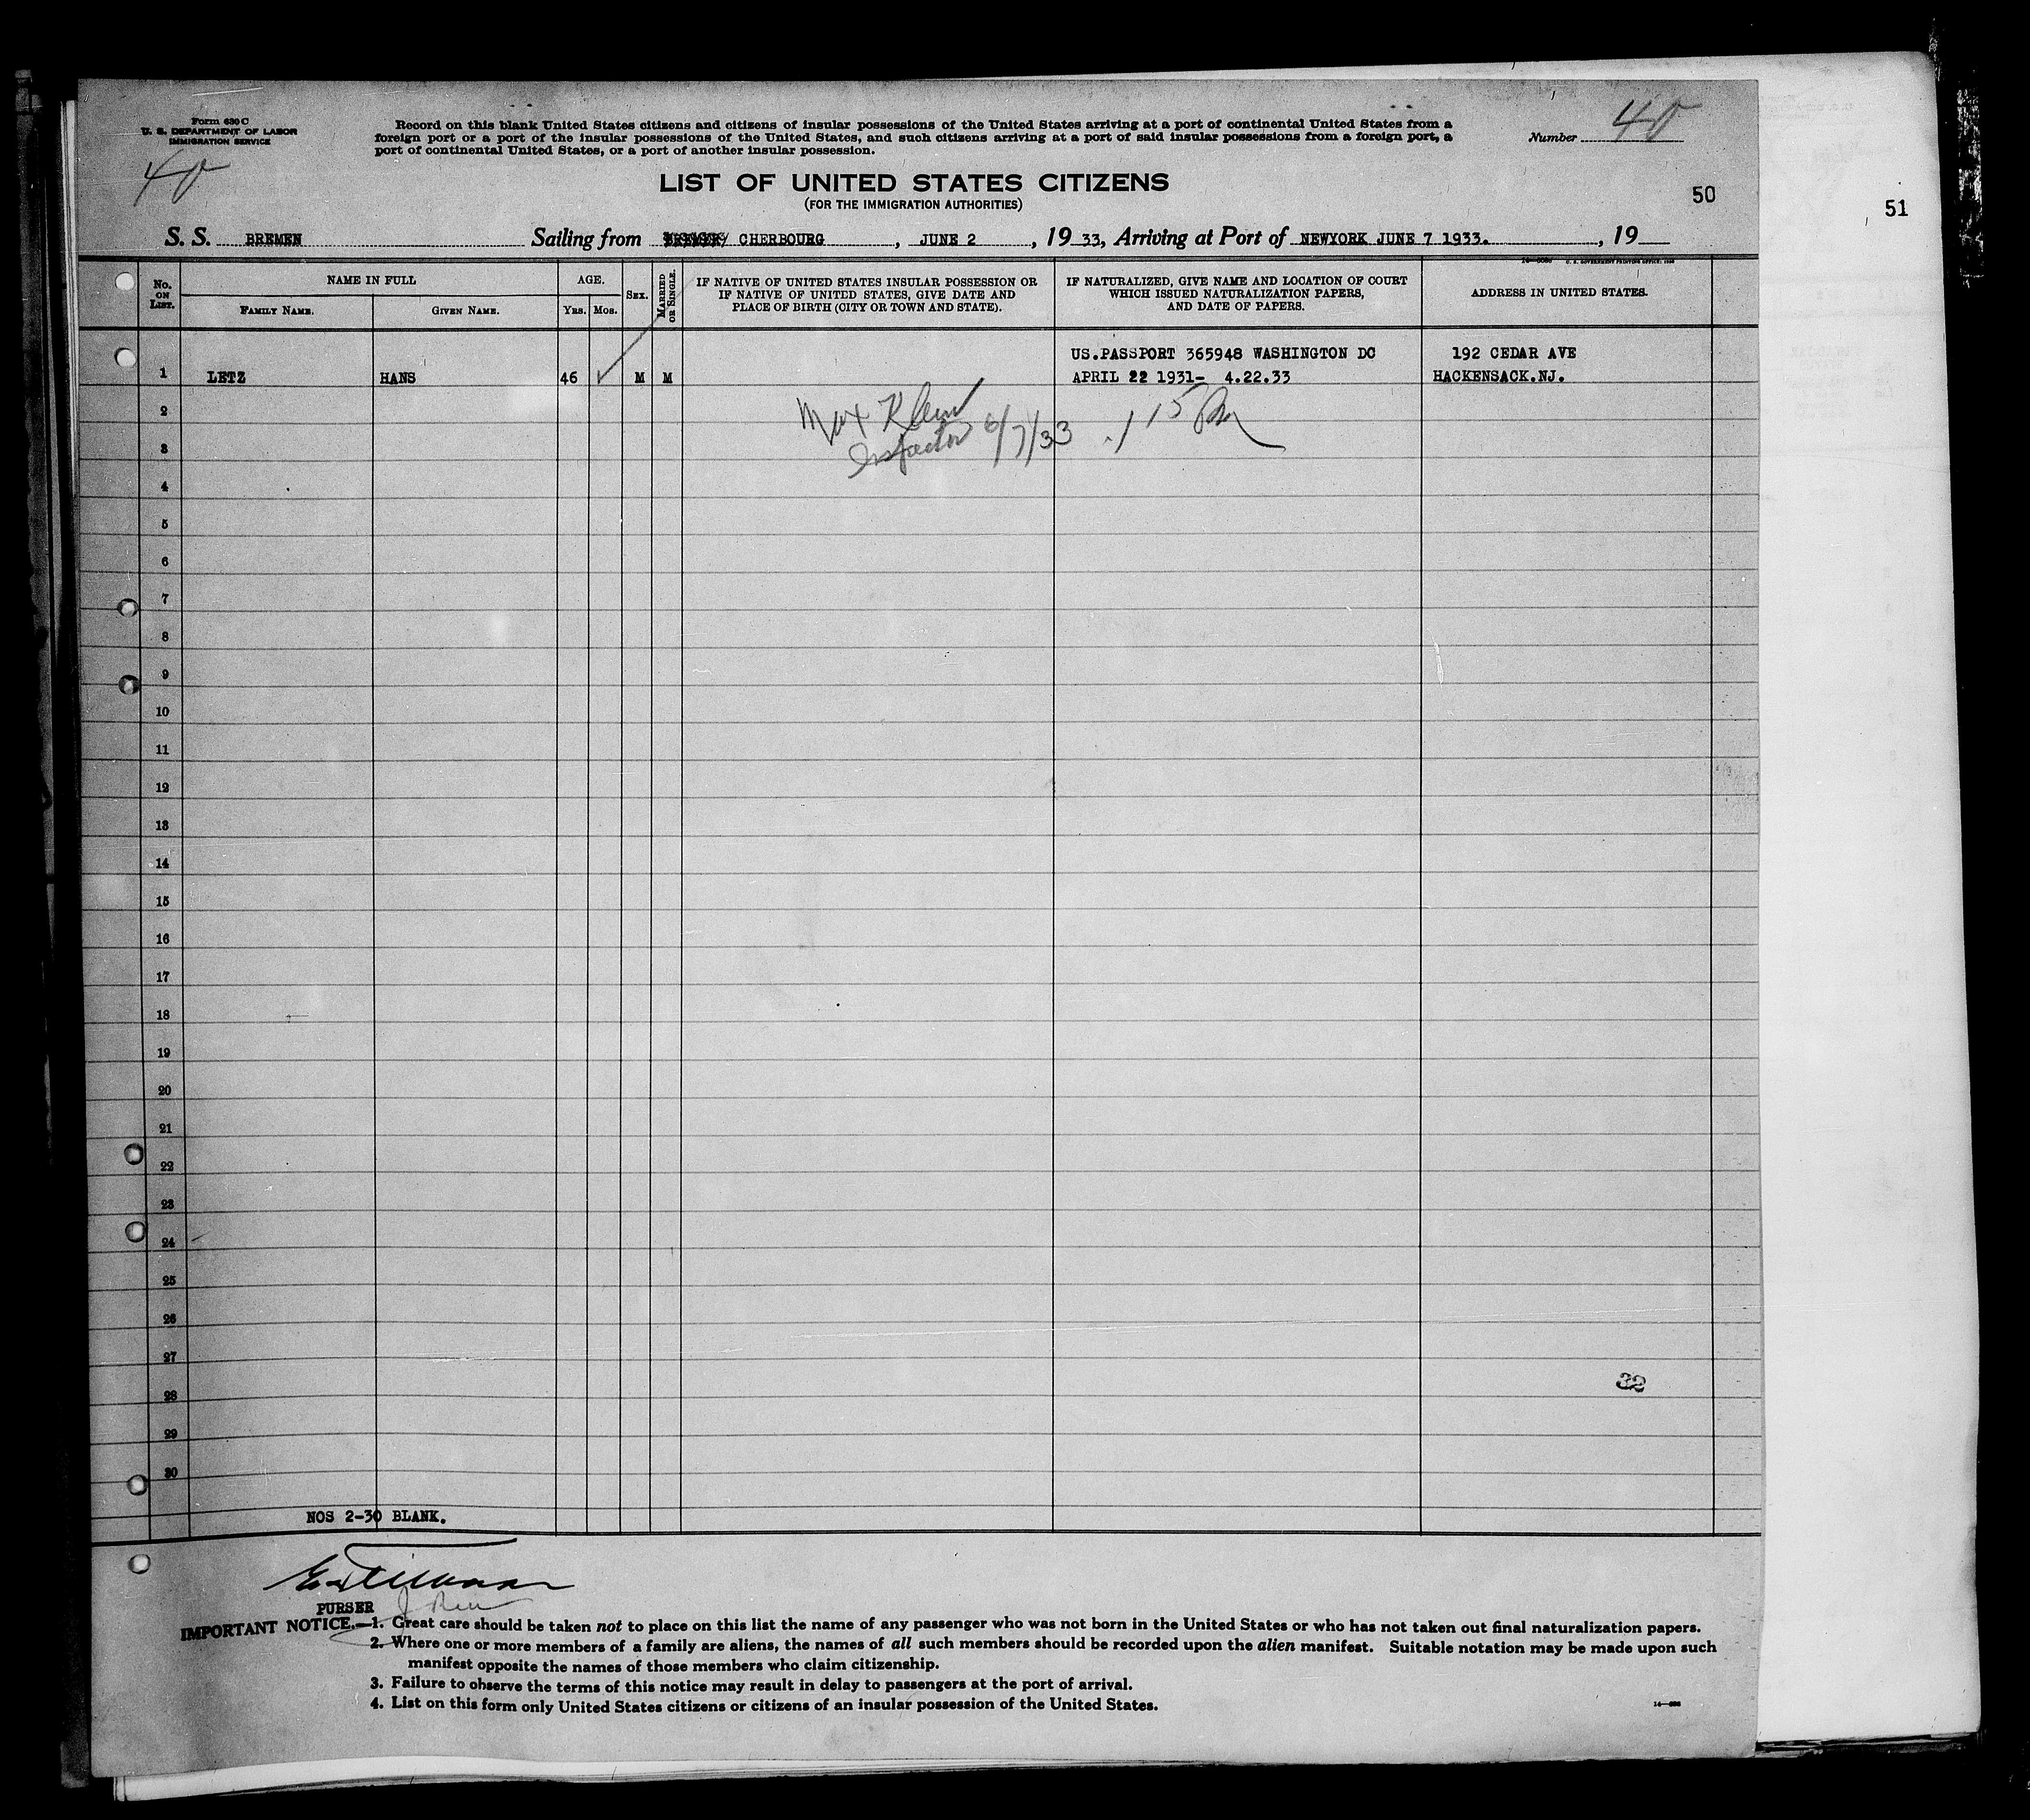 Form 630 C
U. S. DEPARTMENT OF LABOR
IMMIGRATION SERVICE
40
Record on this blank United States citizens and citizens of insular possessions of the United States arriving at a port of continental United States from a
foreign port or a port of the insular possessions of the United States, and such citizens arriving at a port of said insular possessions from a foreign port, a
port of continental United States, or a port of another insular possession.
Number 40
LIST OF UNITED STATES CITIZENS
(FOR THE IMMIGRATION AUTHORITIES)
50
51
S. S. BREMEN Sailing from CHERBOURG , JUNE 2 , 19 33, Arriving at Port of NEWYORK JUNE 7 1933. , 19
No. ON LIST.
NAME IN FULL
FAMILY NAME.
GIVEN NAME.
AGE.
YRS.
MOS.
SEX.
MARRIED OR SINGLE.
IF NATIVE OF UNITED STATES INSULAR POSSESSION OR
IF NATIVE OF UNITED STATES, GIVE DATE AND
PLACE OF BIRTH (CITY OR TOWN AND STATE).
IF NATURALIZED, GIVE NAME AND LOCATION OF COURT
WHICH ISSUED NATURALIZATION PAPERS,
AND DATE OF PAPERS.
U. S. GOVERNMENT PRINTING OFFICE
ADDRESS IN UNITED STATES.
US.PASSPORT 365948 WASHINGTON DC 192 CEDAR AVE
1 LETZ HANS 46 M M APRIL 22 1931- 4.22.33 HACKENSACK.NJ.
2
Max Klein
Inspector 6/7/33
3
4
5
6
7
8
9
10
11
12
13
14
15
16
17
18
19
20
21
22
23
24
25
26
27
28
32
29
30
NOS 2-30 BLANK.
PURSER
IMPORTANT NOTICE.—1. Great care should be taken not to place on this list the name of any passenger who was not born in the United States or who has not taken out final naturalization papers.
2. Where one or more members of a family are aliens, the names of all such members should be recorded upon the alien manifest. Suitable notation may be made upon such
manifest opposite the names of those members who claim citizenship.
3. Failure to observe the terms of this notice may result in delay to passengers at the port of arrival.
4. List on this form only United States citizens or citizens of an insular possession of the United States.